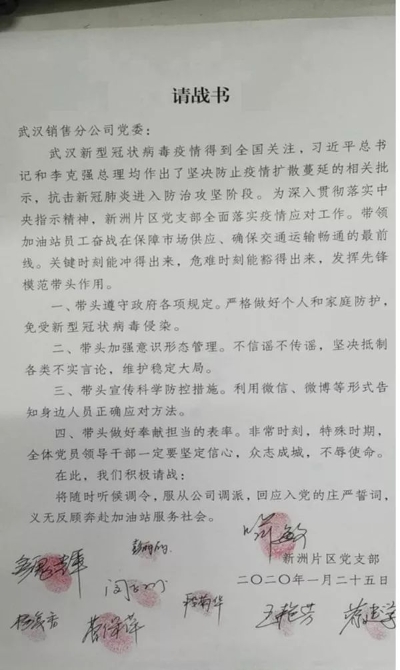 请战书
武汉销售分公司党委：
武汉新型冠状病毒疫情得到全国关注，习近平总书
记和李克强总理均作出了坚决防止疫情扩散蔓延的相关批
示，抗击新冠肺炎进入防治攻坚阶段。为深入贯彻落实中
央指示精神，新洲片区党支部全面落实疫情应对工作。带领
加油站员工奋战在保障市场供应、确保交通运输畅通的最前
线。关键时刻能冲得出来，危难时刻能豁得出来，发挥先锋
模范带头作用。
一、带头遵守政府各项规定。严格做好个人和家庭防护，
免受新型冠状病毒侵染。
二、带头加强意识形态管理。不信谣不传谣，坚决抵制
各类不实言论，维护稳定大局。
三、带头宣传科学防控措施。利用微信、微博等形式告
知身边人员正确应对方法。
四、带头做好奉献担当的表率。非常时刻，特殊时期，
全体党员领导干部一定要坚定信心，众志成城，不辱使命。
在此，我们积极请战：
将随时听候调令，服从公司调派，回应入党的庄严誓词，
义无反顾奔赴加油站服务社会。
新洲片区党支部
二〇二〇年一月二十五日